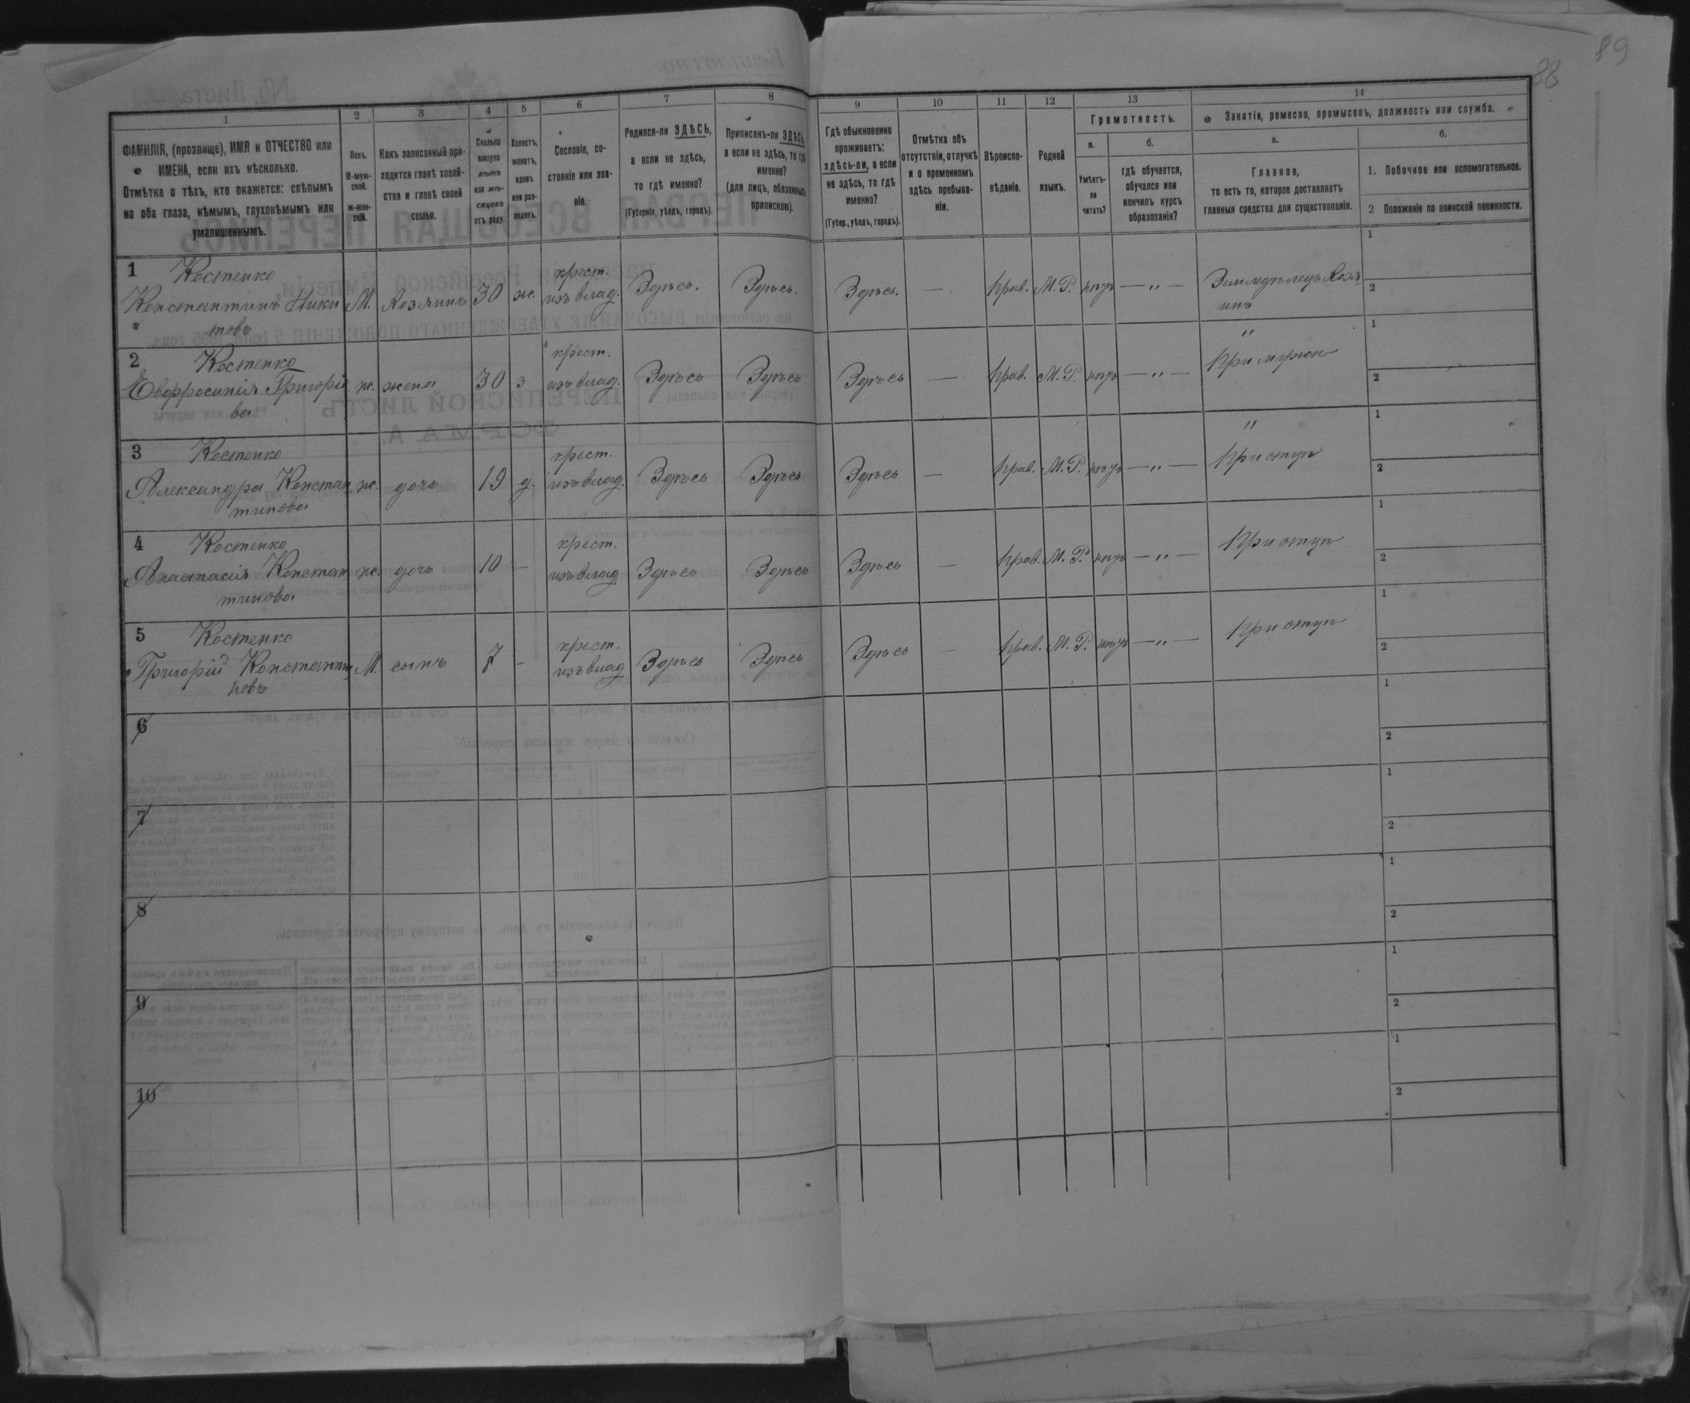 88
89
1 2 3 4 5 6 7 8 9 10 11 12 13 14
ФАМИЛІЯ, (прозвище), ИМЯ и ОТЧЕСТВО или
ИМЕНА, если ихъ нѣсколько.
Отмѣтка о тѣхъ, кто окажется: слѣпымъ
на оба глаза, нѣмымъ, глухонѣмымъ или
умалишеннымъ.
Полъ.
М-муж-
ской.
Ж-жен-
скій.
Какъ записанный при-
ходится главѣ хозяй-
ства и главѣ своей
семьи.
Сколько
минуло
лѣтъ
или мѣ-
сяцевъ
отъ роду.
Холостъ,
женатъ,
вдовъ
или раз-
веденъ.
Сословіе, со-
стояніе или зва-
ніе.
Родился-ли ЗДѢСЬ,
а если не здѣсь,
то гдѣ именно?
(Губернія, уѣздъ, городъ).
Приписанъ-ли ЗДѢСЬ,
а если не здѣсь, то гдѣ
именно?
(для лицъ, обязанныхъ
припискою).
Гдѣ обыкновенно
проживаетъ:
здѣсь-ли, а если
не здѣсь, то гдѣ
именно?
(Губер., уѣздъ, городъ).
Отмѣтка объ
отсутствіи, отлучкѣ
и о временномъ
здѣсь пребыва-
ніи.
Вѣроиспо-
вѣданіе.
Родной
языкъ.
Грамотность.
а.
Умѣетъ-
ли
читать?
б.
гдѣ обучается,
обучался или
кончилъ курсъ
образованія?
Занятіе, ремесло, промыселъ, должность или служба.
а.
Главное,
то есть то, которое доставляетъ
главныя средства для существованія.
б.
1. Побочное или вспомогательное.
2 Положеніе по воинской повинности.
1 Костенко
Константинъ Ники
товъ
М. Хозяинъ 30 ж. крест.
изъ влад. Здѣсь. Здѣсь. Здѣсь. — Прав. М.Р. нѣтъ — „ — Земледѣлецъ Хозя
инъ
1
2
2 Костенко
Евфросинія Григорiе
ва
ж. жена 30 з крест.
изъ влад. Здѣсь Здѣсь Здѣсь — Прав. М.Р. нѣтъ — „ — „
При мужѣ
1
2
3 Костенко
Александра Констан
тинова
ж. дочь 19 д. крест.
изъ влад. Здѣсь Здѣсь Здѣсь — Прав. М.Р. нѣтъ — „ — „
При отцѣ
1
2
4 Костенко
Анастасія Констан
тинова
ж. дочь 10 - крест.
изъ влад Здѣсь Здѣсь Здѣсь — Прав. М.Р. нѣтъ — „ — При отцѣ
1
2
5 Костенко
Григорій Константи
новъ
М. сынъ 7 - крест.
изъ влад Здѣсь Здѣсь Здѣсь — Прав. М.Р. нѣтъ — „ — При отцѣ
1
2
6
1
2
7
1
2
8
1
2
9
1
2
10
1
2